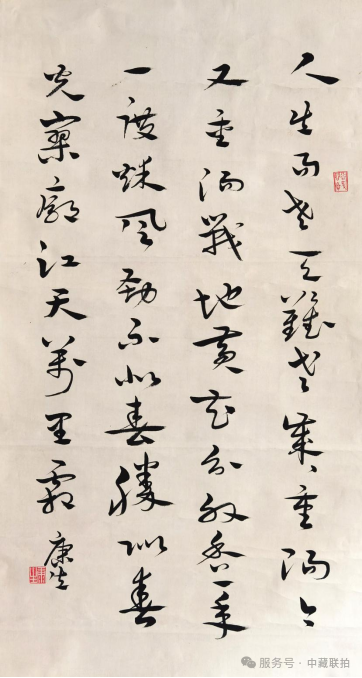 人生易老天難老歲、重陽今
又重陽戰地黃花分外香一年
一度秌風勁不似春勝似春
光寥廓江天萬里霜
康生
服务号 · 中藏联拍